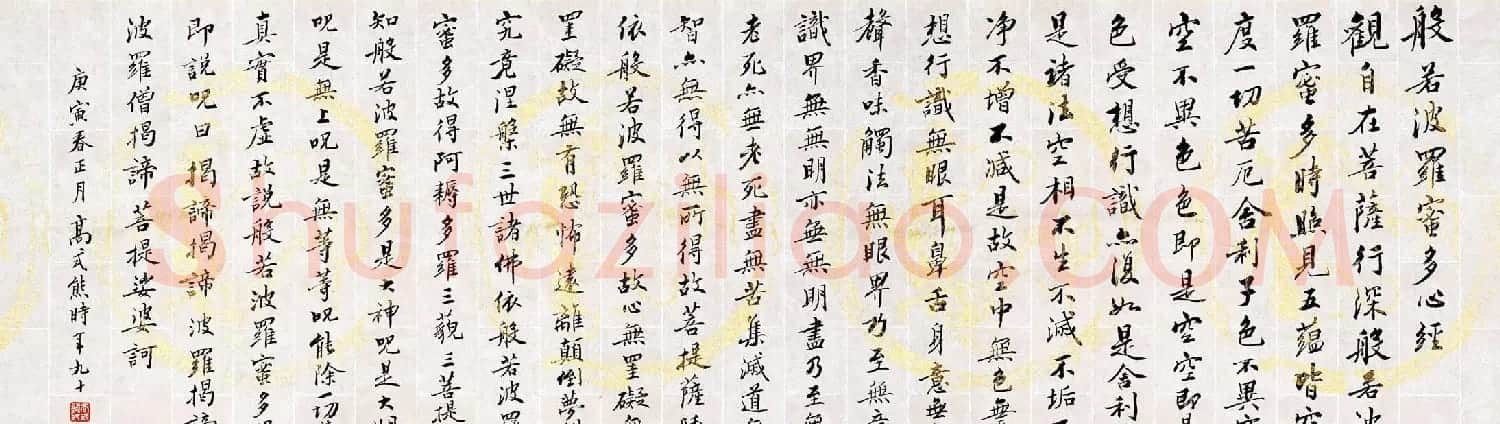 般若波羅蜜多心經
觀自在菩薩行深般若波
羅蜜多時照見五蘊皆空
度一切苦厄舍利子色不異空
空不異色色即是空空即是
色受想行識亦復如是舍利
是諸法空相不生不滅不垢不
净不增不減是故空中無色無
想行識無眼耳鼻舌身意無
聲香味觸法無眼界乃至無意
識界無無明亦無無明盡乃至無
老死亦無老死盡無苦集滅道無
智亦無得以無所得故菩提薩埵
依般若波羅蜜多故心無罣礙無
罣礙故無有恐怖遠離顛倒夢想
究竟涅槃三世諸佛依般若波羅
蜜多故得阿耨多羅三藐三菩提
知般若波羅蜜多是大神呪是大明
呪是無上呪是無等等呪能除一切苦
真實不虛故說般若波羅蜜多
即說呪曰揭諦揭諦波羅揭諦
波羅僧揭諦菩提娑婆訶
庚寅春正月高式熊時年九十
Shufaziliao.COM